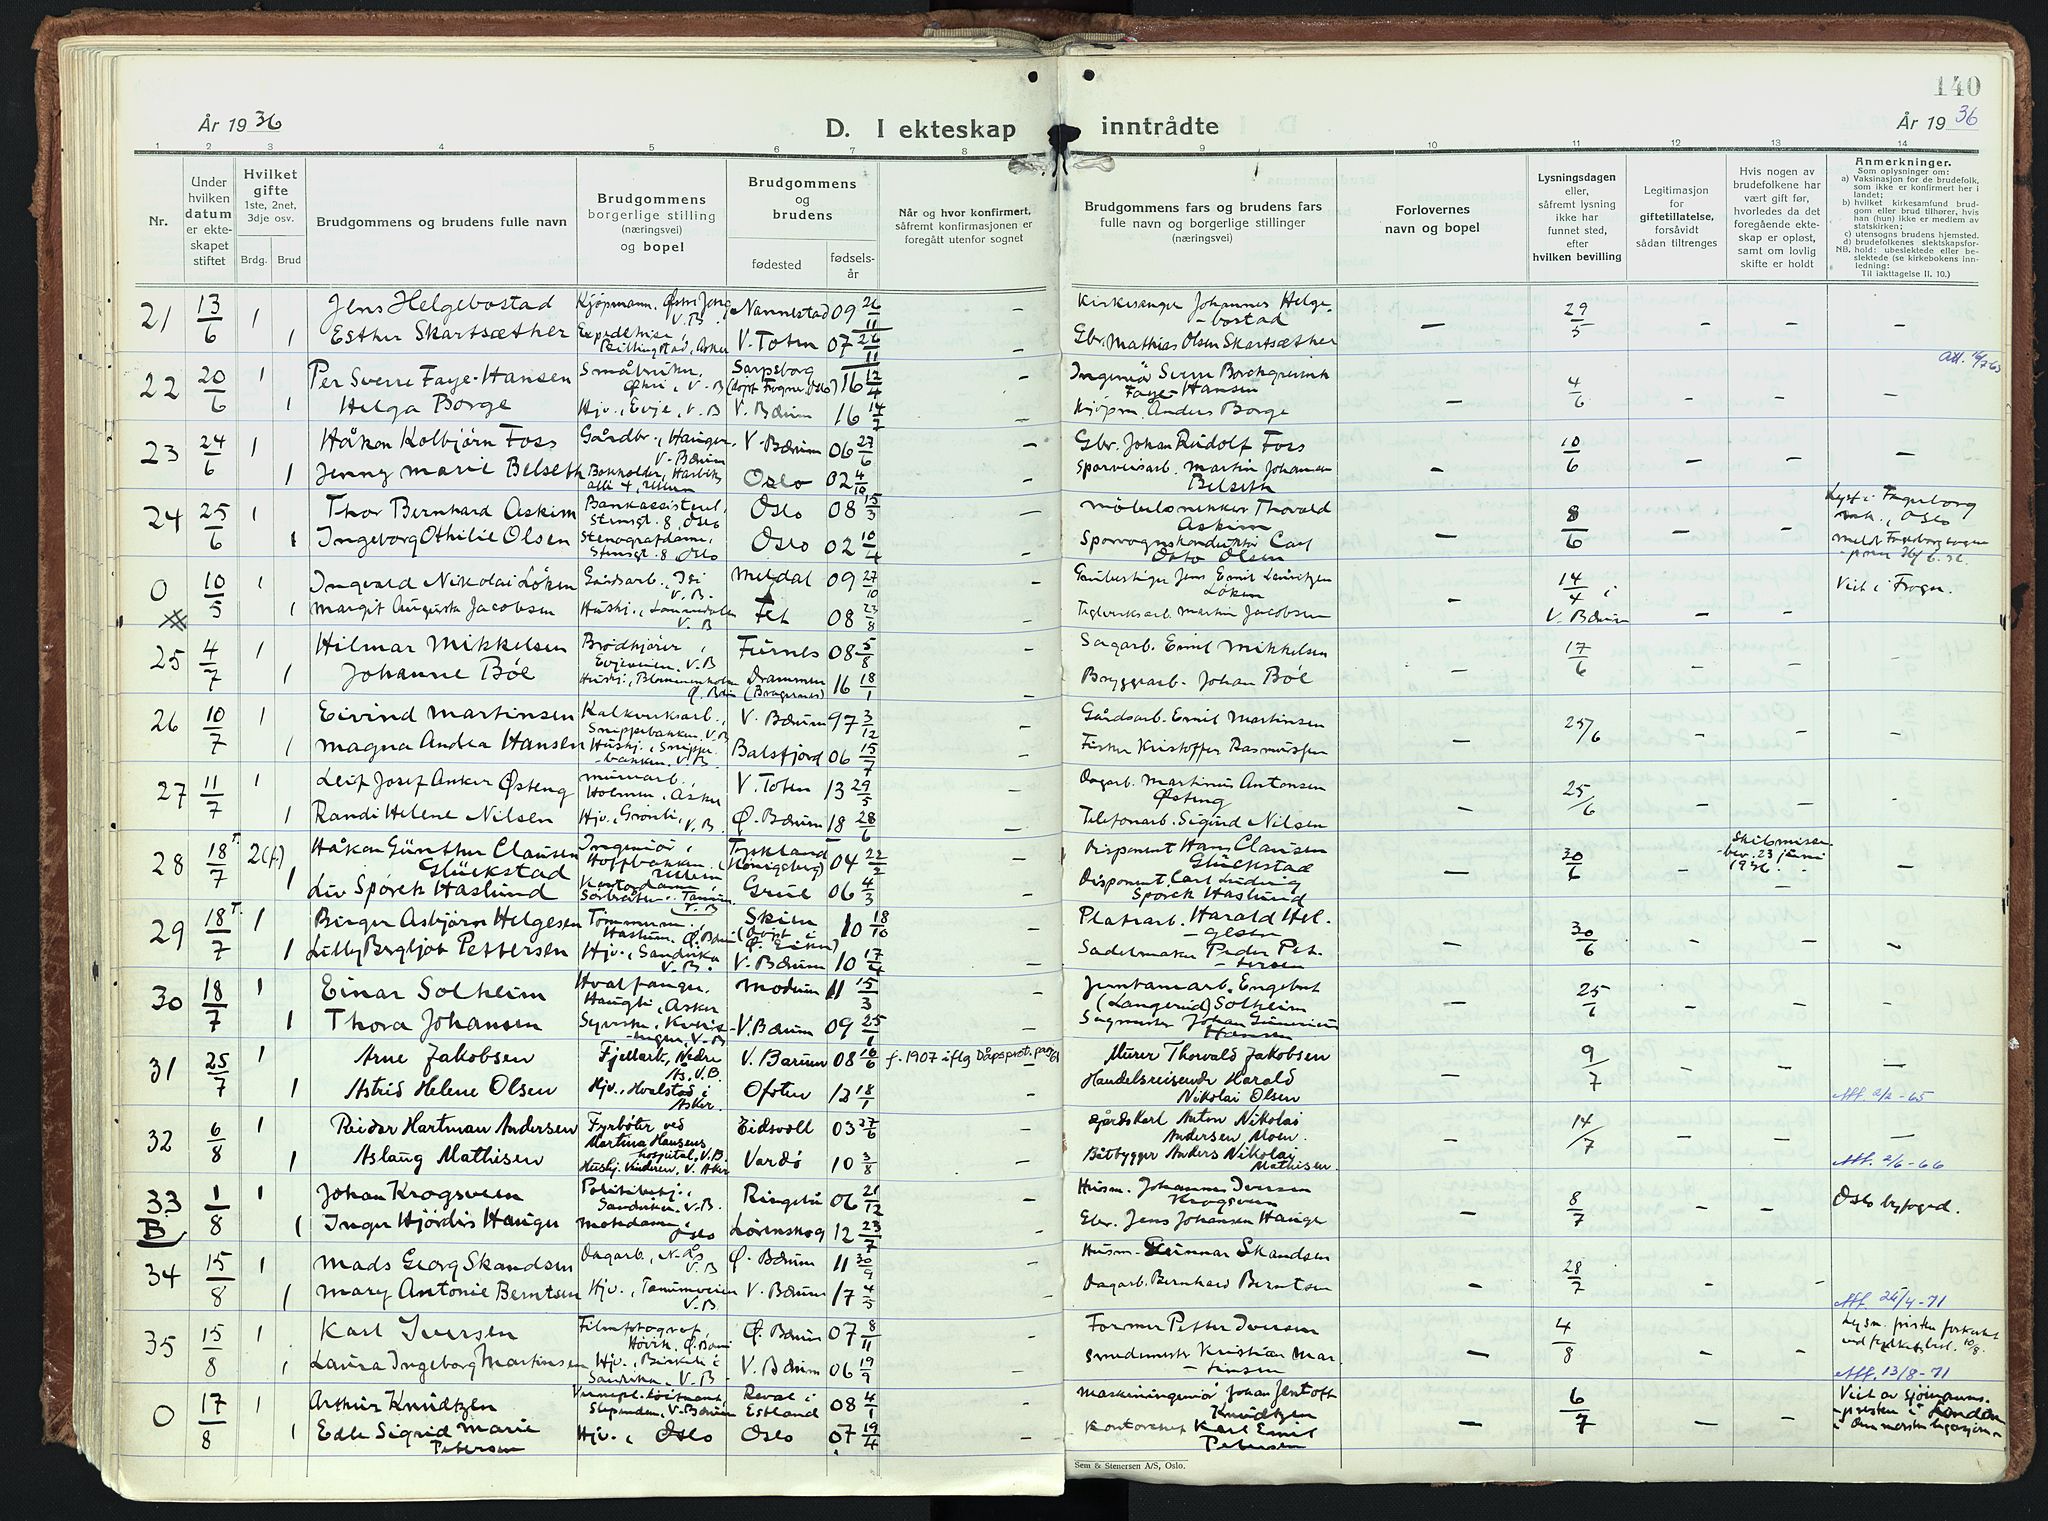 140
År 1936
D. I ekteskap inntrådte
År 1936
1 2 3 4 5 6 7 8 9 10 11 12 13 14
Nr.
Under hvilken datum er ekteskapet stiftet
Hvilket gifte 1ste, 2net, 3dje osv.
Brdg. Brud
Brudgommens og brudens fulle navn
Brudgommens borgerlige stilling (næringsvei) og bopel
Brudgommens og brudens
fødested
fødselsår
Når og hvor konfirmert, såfremt konfirmasjonen er foregått utenfor sognet
Brudgommens fars og brudens fars fulle navn og borgerlige stillinger (næringsvei)
Forlovernes navn og bopel
Lysningsdagen eller, såfremt lysning ikke har funnet sted, efter hvilken bevilling
Legitimasjon for giftetillatelse, forsåvidt sådan tiltrenges
Hvis nogen av brudefolkene har vært gift før, hvorledes da det foregående ekteskap er opløst, samt om lovlig skifte er holdt
Anmerkninger.
Som oplysninger om:
a) Vaksinasjon for de brudefolk, som ikke er konfirmert her i landet;
b) hvilket kirkesamfund brudgom eller brud tilhører, hvis han (hun) ikke er medlem av statskirken;
c) utensogns brudens hjemsted.
d) brudefolkenes slektskapsforhold: ubeslektede eller beslektede (se kirkebokens innledning:
NB.
Til iakttagelse II. 10.)
21 13/6 1 Jens Helgebostad Kjøpmann, V.B. Nannestad 09 26/11 – Kirkesanger Johannes Helge-
bostad – 29/5 – – –
1 Esther Skartsæther Billingstad, Asker V. Toten 07 26/11 – Gbr. Mathias Olsen Skartsæther
22 20/6 1 Per Sverre Faye-Hansen Småbruker, V.B Sarpsborg (døpt Frogner, Oslo) 16 12/4 Ingeniør Sverre Borchgrevink
Faye-Hansen – 4/6 – – –
1 Helga Borge Hjv., Evje, V.B V. Bærum 16 14/7 Kjøpm. Anders Borge
23 24/6 1 Håkon Kolbjörn Foss Gårdbr., Haugen, V. Bærum V. Bærum 06 27/6 – Gbr. Johan Rudolf Foss – 10/6 – – –
1 Jenny Marie Belseth Bokholder, Harbitz alle 4, Ullern Oslo 02 4/10 – Sporveisarb. Martin Johansen
Belseth
24 25/6 1 Thor Bernhard Askim Bankassistent, Stensgt. 8, Oslo Oslo 08 15/3 Møbelsnekker Thorvald
Askim – 8/6 – – Lyst i Fagerborg
1 Ingeborg Othilie Olsen Stenografdame, Stensgt. 8 Oslo Oslo 02 10/4 Sporvognskonduktør Carl
Otto Olsen
0 10/5 1 Ingvald Nikolai Løken Gårdsarb., V.B. Meldal 09 27/10 – Jens Emil Lauritzen
Løken 14/4 i V. Bærum – – Viet i Frogn.
1 Margit Augusta Jacobsen Hushj., V.B Fet 08 23/8 – Teglverksarb. Martin Jacobsen
25 4/7 1 Hilmar Mikkelsen Brødkjører, V.B Furnes 08 5/8 Sagarb. Emil Mikkelsen – 17/6 – – –
1 Johanne Böe Hushj., Blommenholm Ø. Bærum Drammen (Bragernes) 16 18/1 – Bryggearb. Johan Böe
26 10/7 1 Eivind Martinsen Kalkverksarb., V.B V. Bærum 97 3/12 – Gårdsarb. Emil Martinsen – 25/6 – – –
1 Magna Andrea Hansen Hushj., V.B. Balsfjord 06 15/7 – Fisker Kristoffer Rasmussen
27 11/7 1 Leif Josef Anker Østeng Murerarb., Holmen, Asker V. Toten 13 29/5 – Dagarb. Martinus Antonsen
Østeng – 25/6 – – –
1 Randi Helene Nilsen Hjv., Grønli, V.B. Ø. Bærum 18 28/6 – Telefonarb. Sigurd Nilsen
28 18/7 2(f) Håkon Günther Clausen
Glückstad Ingeniør, Hoffsbakken, Ullern Tyskland (Königsberg) 04 22/2 Disponent Hans Clausen
Glückstad – 30/6 – Skilsmisse-
bev. 23 juni
1936. –
1 Liv Spörck Haslund Kontordame, Tanum, V.B Grue 06 4/3 Disponent Carl Ludvig
Spörck Haslund
29 18/7 1 Birger Asbjörn Helgesen Tömmerm., Haslum, Ø. Bærum Skien (døpt i Ø. Eiker) 10 18/10 – Platearb. Harald Hel-
gesen – 30/6 – – –
1 Lilly Bergljot Pettersen Hjv., Sandvika V.B. V. Bærum 10 17/4 – Sadelmaker Peder Pet-
tersen
30 18/7 1 Einar Solheim Hvalfanger, Asker Modum 11 15/3 – Jerntamarb. Engebret
(Langerud) Solheim – 25/6 – – –
1 Thora Johansen Syerske, V.B V. Bærum 09 25/1 – Sagmester Johan Gunerius
Hansen
31 25/7 1 Arne Jakobsen Fjellarb., Nedre Ås, V.B. V. Bærum 08 16/6 f. 1907 iflg Dåpsprot. Murer Thorvald Jakobsen – 9/7 – – –
1 Astrid Helene Olsen Hjv., Hvalstad i Asker. Ofoten 12 18/1 – Handelsreisende Harald
Nikolai Olsen Att. 2/2-65
32 6/8 1 Reidar Hartman Andersen Fyrbøter ved Martina Hansens hospital, V.B. Eidsvoll 03 27/6 Gårdskarl Anton Nikolai
Andersen Moen. – 14/7 – – –
1 Aslaug Mathisen Hushj. Vinderen, V. Aker Vardö 10 3/8 – Båtbygger Anders Nikolai
Mathisen. Att. 2/6-66
33 1/8 1 Johan Krogsveen Politibetj., Sandviken, V.B. Ringebu 06 21/12 – Husm. Johannes Iversen
Krogsveen – 8/7 – – Oslo byfoged.
B 1 Inger Hjördis Hauger Motedame, Oslo Lørenskog 12 23/7 – Jens Johansen Hauge
34 15/8 1 Mads Georg Skandsen Dagarb., N. Ås V.B Ø. Bærum 11 30/9 Husm. Gunnar Skandsen – 28/7 – –
1 Mary Antonie Berntsen Hjv., Tanumveien V.B V. Bærum 17 4/5 Dagarb. Bernhard Berntsen Att. 24/4-71
35 15/8 1 Karl Iversen Filmfotograf, Høvik, Ø. Bærum Ø. Bærum 07 8/11 Former Petter Iversen – 4/8 – – Lysn. fristen forkortet
1 Laura Ingeborg Martinsen Hjv., Sandvika, V.B V. Bærum 06 19/9 – Smedmester Kristian Mar-
tinsen Att. 13/8-71
0 17/8 1 Arthur Knudtzen Vernepl. løitnant, Slependen, V. Bærum Reval i Estland 08 4/1 Maskiningeniør Johan Jentoft
Knudtzen – 6/7 – – Viet av sjömanns-
presten i London
1 Edle Sigrid Marie
Petersen Hjv., Oslo Oslo 07 19/4 Kontorchef Karl Emil
Petersen
Sem & Stenersen A/S, Oslo.